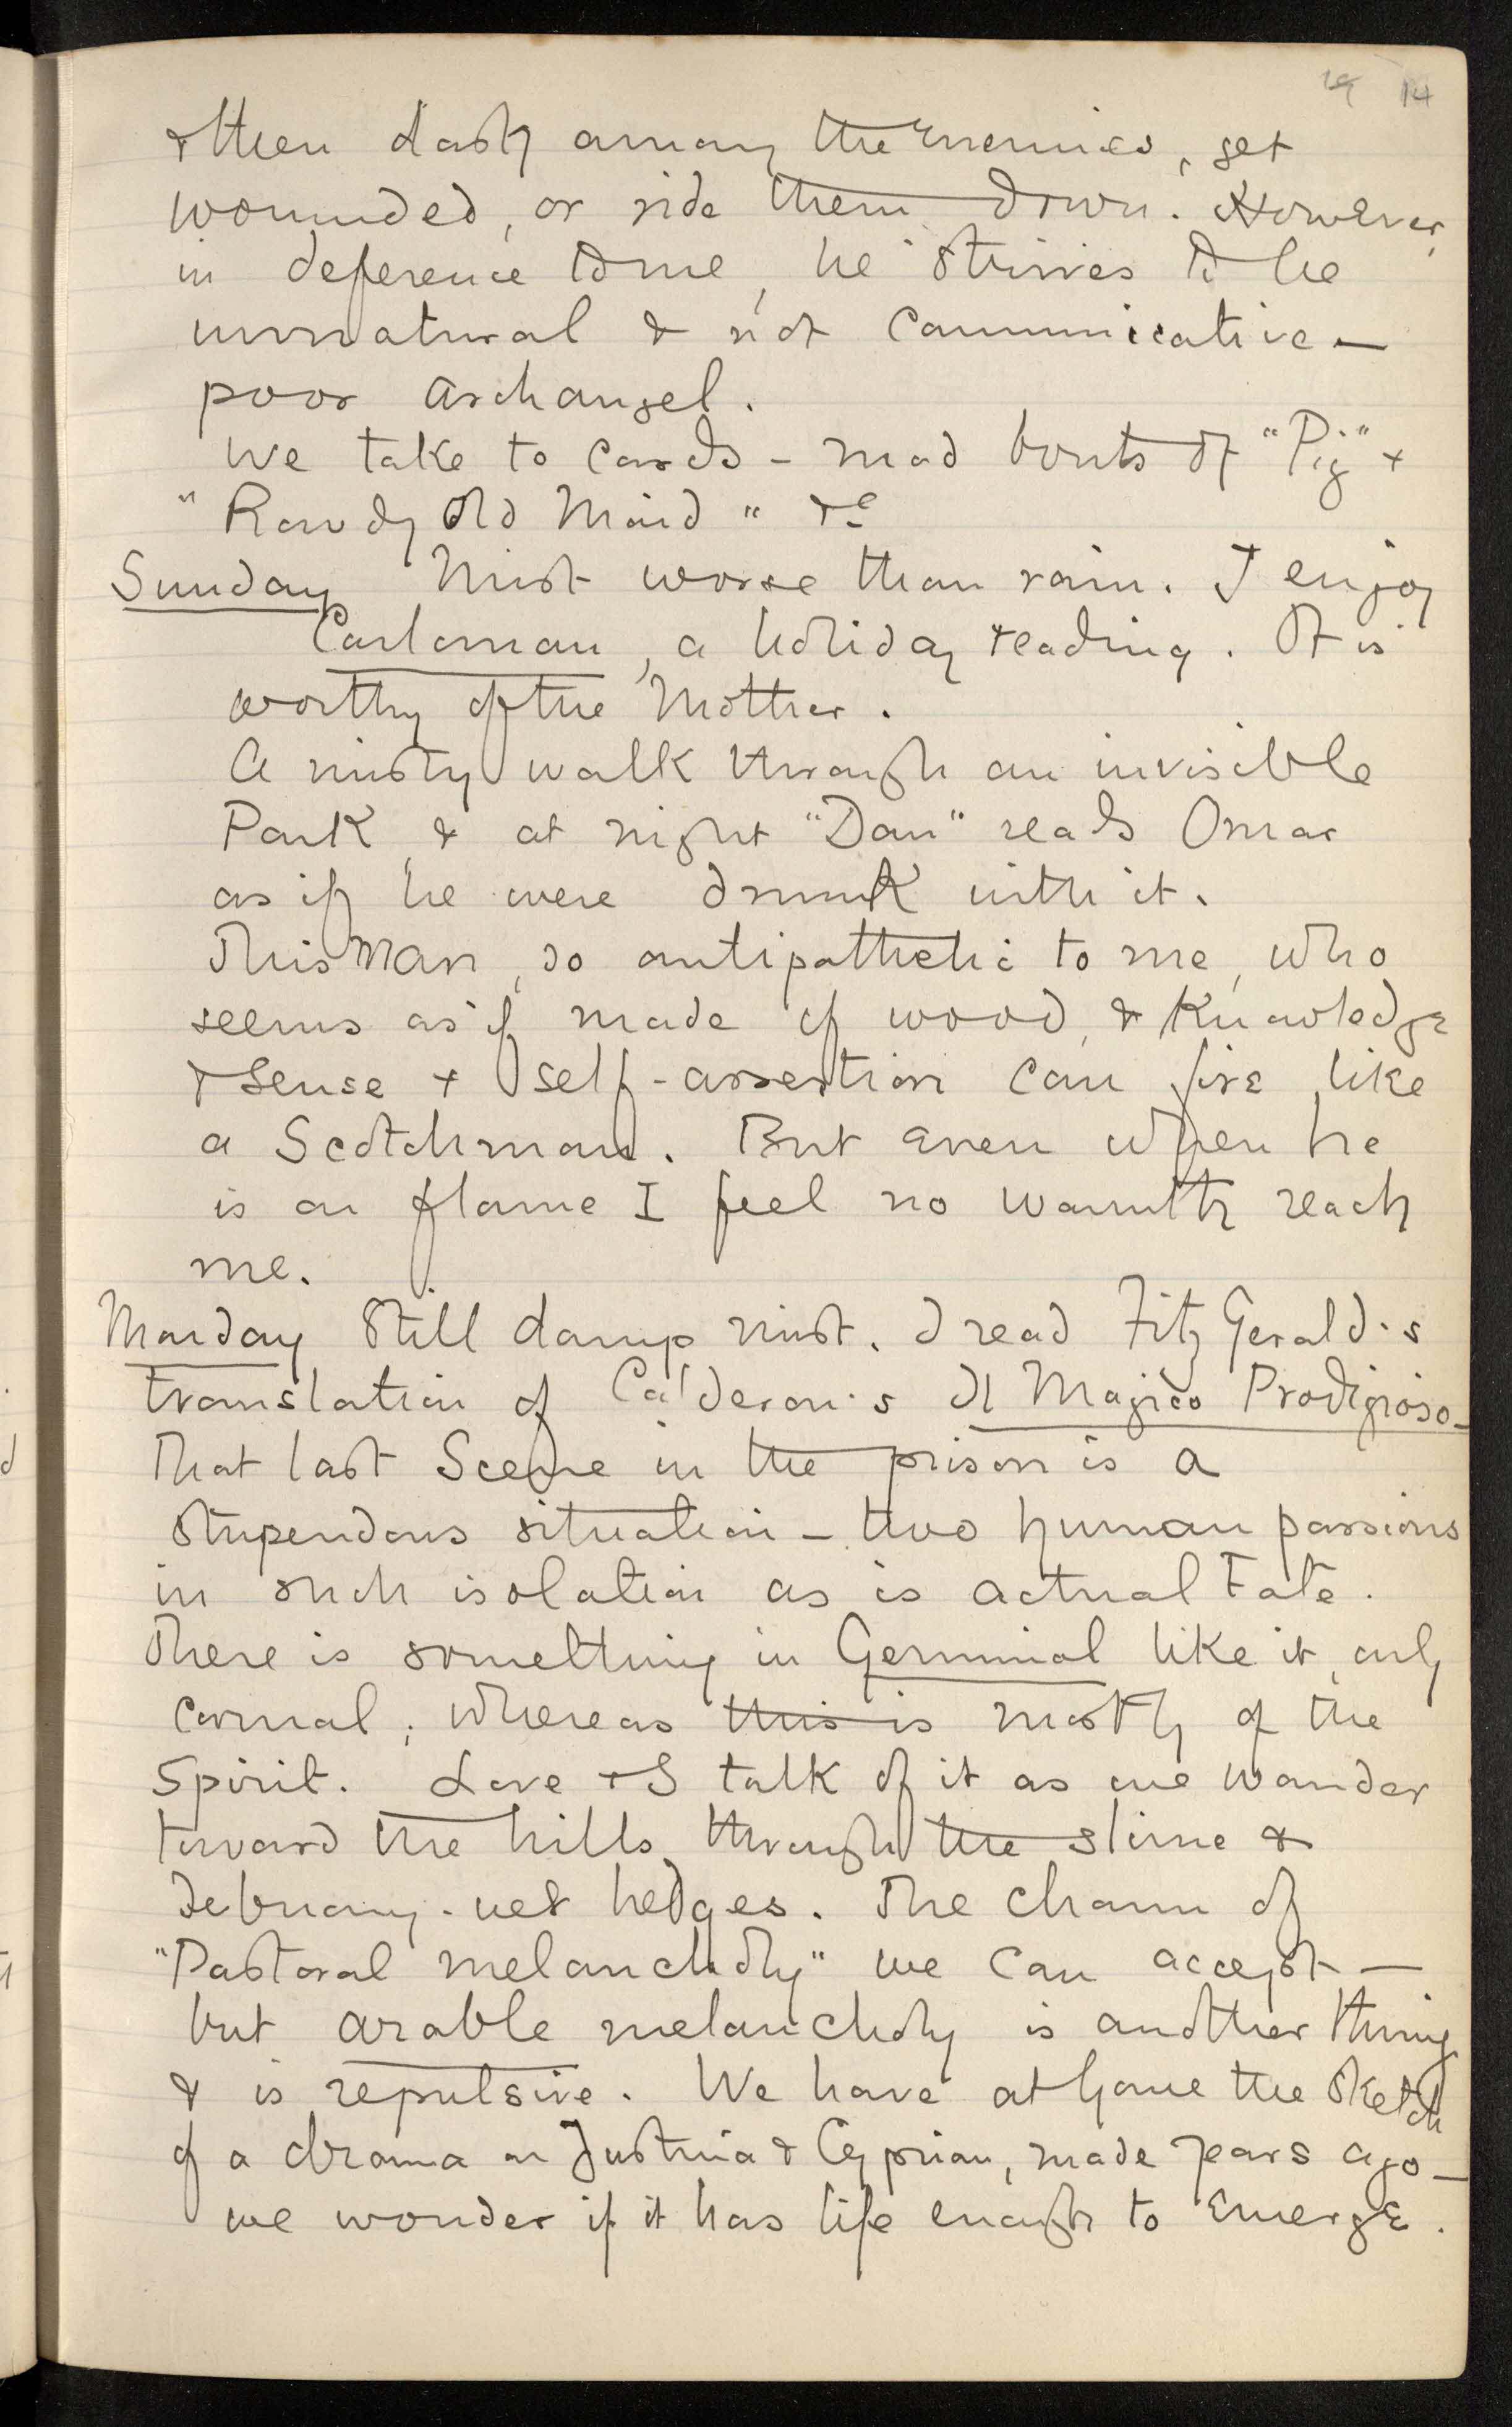 19 14
& then dash among the enemies, get
wounded, or ride them down. However,
in deference to me, he strives to be
unnatural & not communicative —
poor Archangel.
We take to cards – mad bouts of "Pig" &
"Rowdy Old Maid" &c
Sunday Mist worse than rain. I enjoy
Carloman, a holiday reading. It is
worthy of the Mother.
A misty walk through an invisible
Park, & at night "Dan" reads Omar
as if he were drunk with it.
This man, so antipathetic to me, who
seems as if made of wood, & knowledge
& sense & self-assertion can fire like
a Scotchman. But even when he
is on flame I feel no warmth reach
me.
Monday Still damp mist. I read FitzGerald's
translation of Calderon's Il Magico Prodigioso –
That last Scene in the prison is a
stupendous situation – two human passions
in such isolation as is actual Fate.
There is something in Germinal like it, only
carnal; whereas this is mostly of the
Spirit. Love & I talk of it as we wander
toward the hills, through the slime &
February-wet hedges. The charm of
"Pastoral melancholy" we can accept —
but arable melancholy is another thing
& is repulsive. We have at home the sketch
of a drama on Justina & Cyprian, made years ago –
we wonder if it has life enough to emerge.